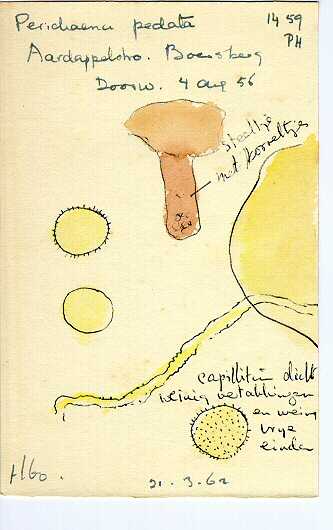 Perichaena pedata
1459
PH
Aardappelstro. Boersberg
Doorw. 4 aug 56
steeltje
met korreltjes
capillitiu dicht
weinig vertakkingen
en weinig
vrije
einden
21.3.62